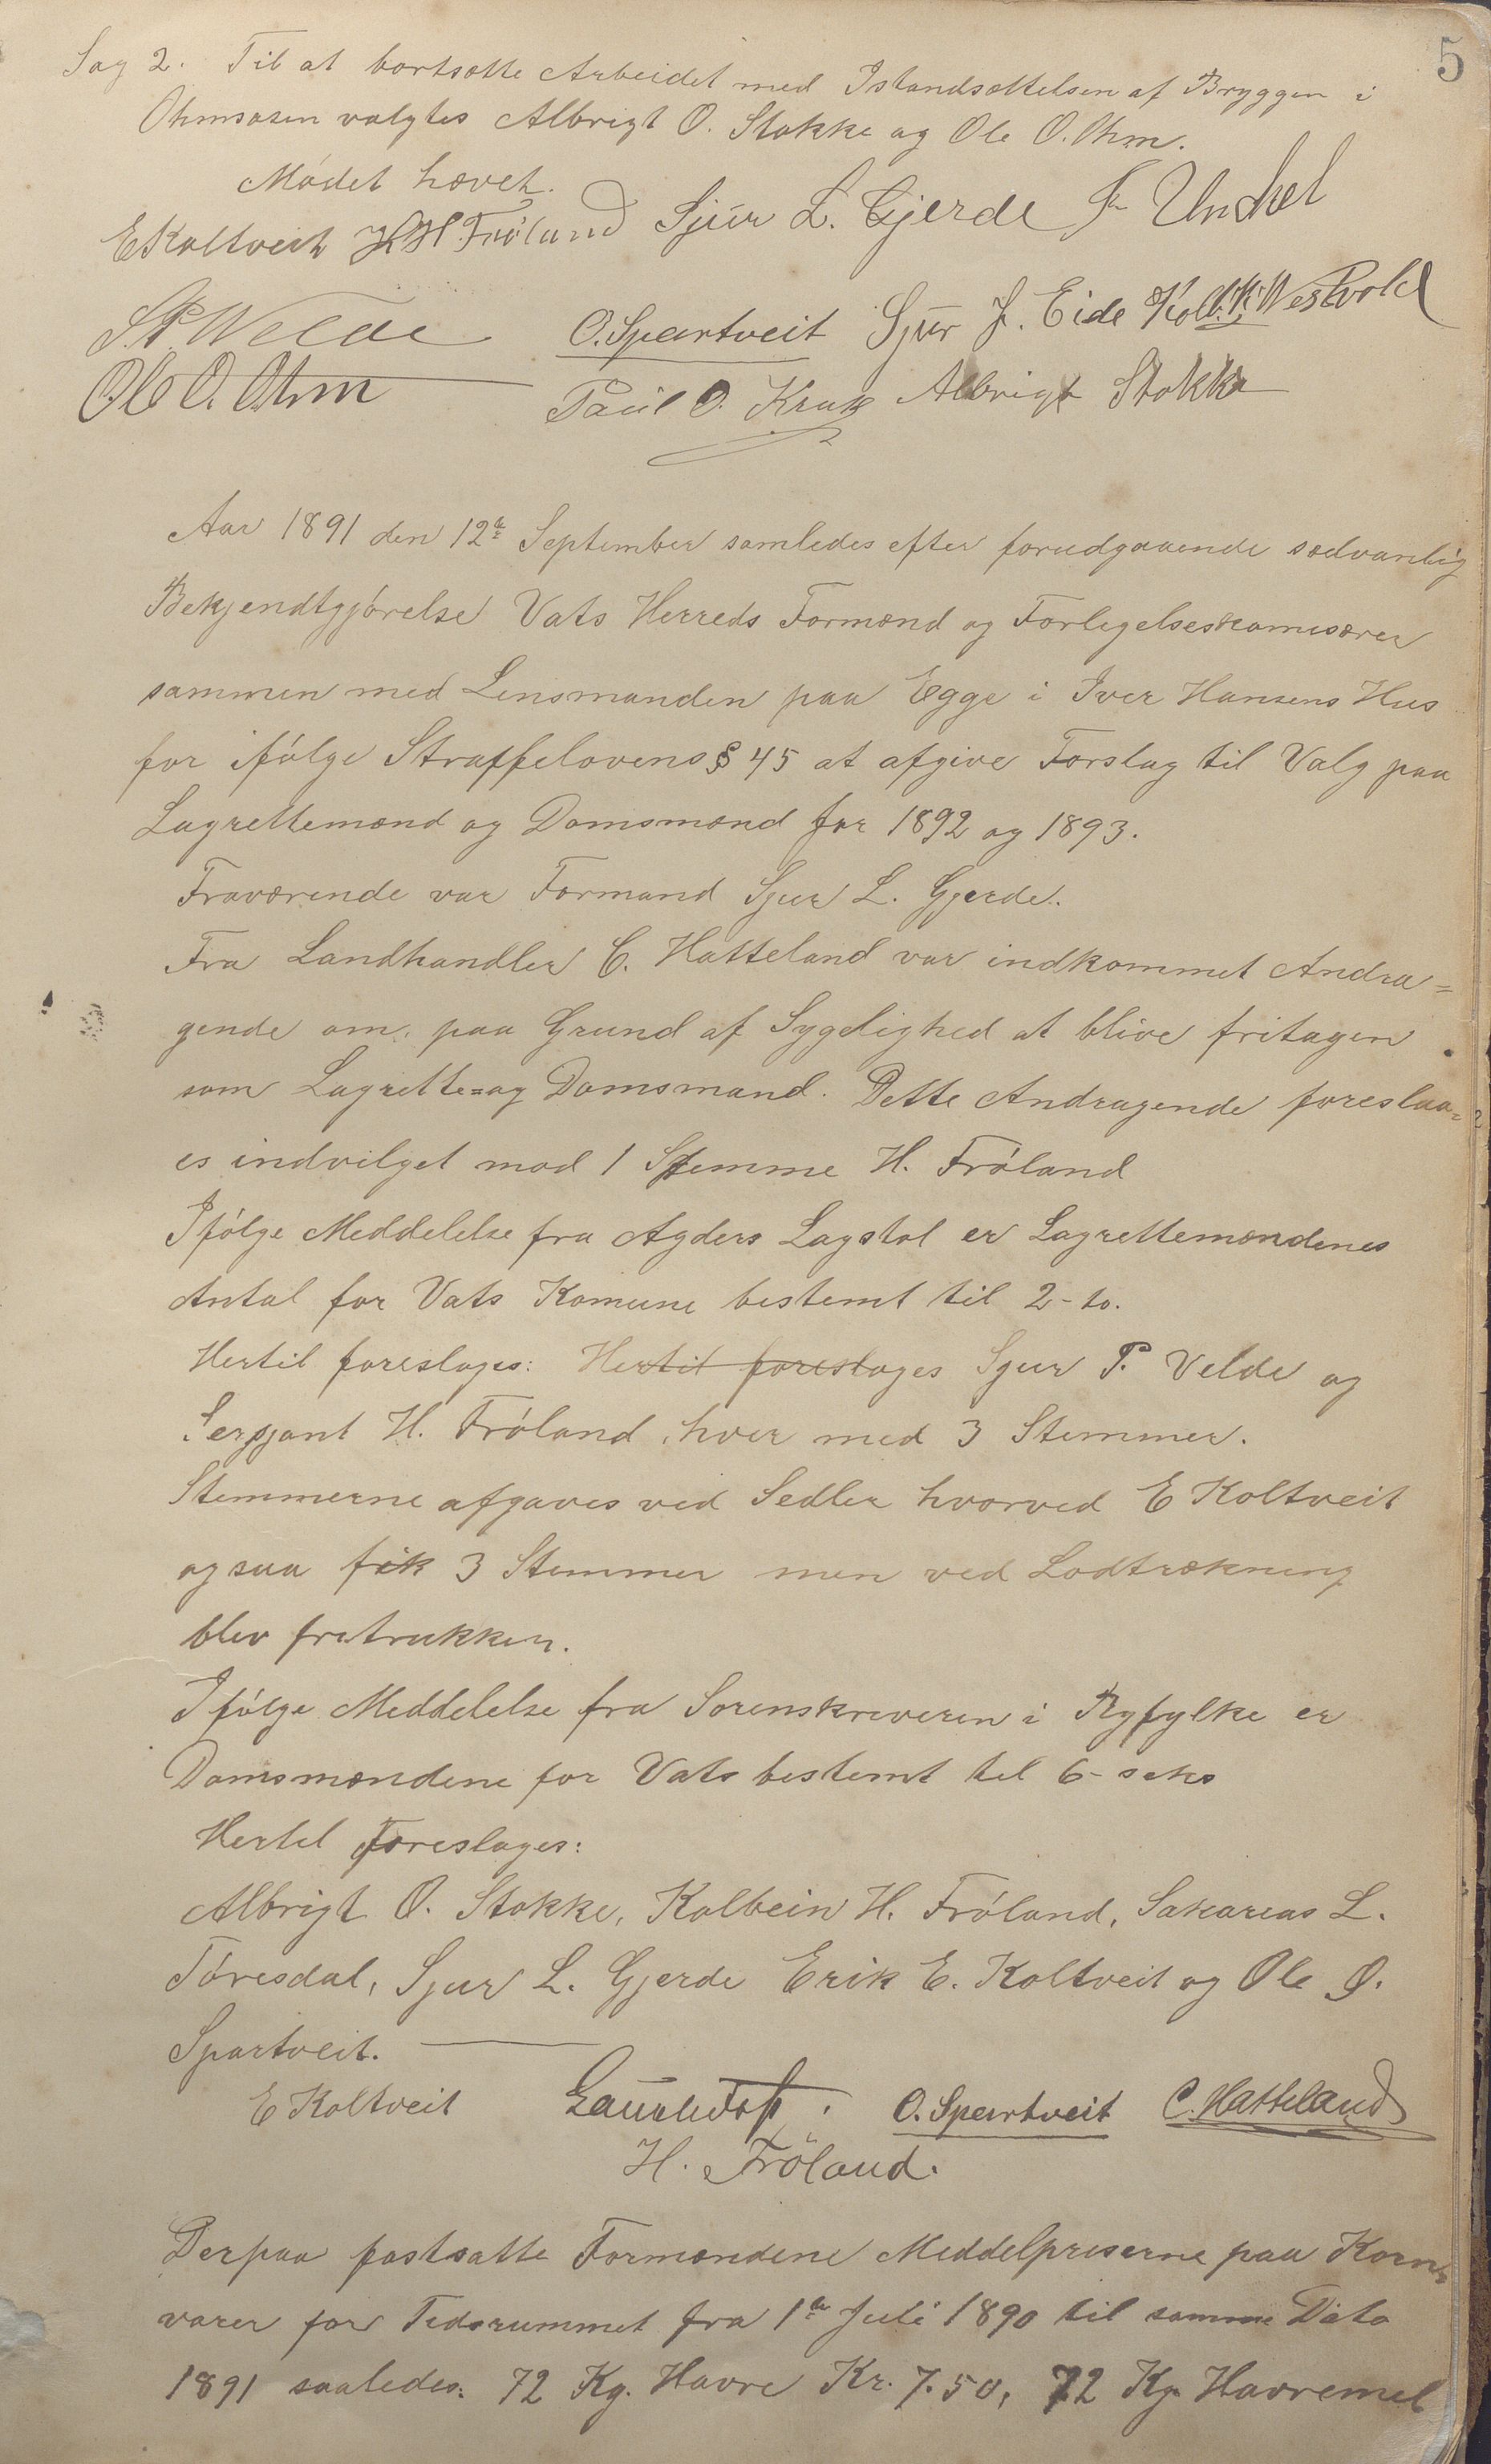 5
Sag 2. Til at bortsætte Arbeidet med Istandsættelsen af Bryggen i
Ohmsosen valgtes Albrigt O. Stokke og Ole O. Ohm.
Mødet hævet.
E Koltveit H H. Frøland Sjur L. Gjerde
S P. Velde O. Spartveit Sjur J. Eide Kolb. K. Westvold
Ole O. Ohm Paul O. Krak Albrigt Stokke
Aar 1891 den 12te September samledes efter forudgaaende sædvanlig
Bekjendtgjørelse Vats Herreds Formænd og Forligelseskomisærer
sammen med Lensmanden paa Egge i Iver Hansens Hus
for ifølge Straffelovens § 45 at afgive Forslag til Valg paa
Lagrettemænd og Domsmænd for 1892 og 1893.
Fraværende var Formand Sjur L. Gjerde.
Fra Landhandler C. Hatteland var indkommet Andra=
gende om, paa Grund af Sygelighed at blive fritagen
som Lagrette=og Domsmand. Dette Andragende foreslaa=
es indvilget mod 1 Stemme H. Frøland
Ifølge Meddelelse fra Agders Lagstol er Lagrettemændenes
Antal for Vats Komune bestemt til 2- to.
Hertil foreslages: Hertil foreslages Sjur P. Velde og
Sersjant H. Frøland, hver med 3 Stemmer.
Stemmerne afgaves ved Sedler hvorved E Koltveit
ogsaa fik 3 Stemmer men ved Lodtrækning
blev fratrukken.
Ifølge Meddelelse fra Sorenskriveren i Ryfylke er
Domsmændene for Vats bestemt til 6- seks
Hertil foreslages:
Albrigt O. Stokke, Kolbein H. Frøland, Sakarias L.
Tøresdal, Sjur L. Gjerde Erik E. Koltveit og Ole O.
Spartveit.
E Koltveit O. Spartveit C. Hatteland
H. Frøland.
Derpaa fastsatte Formændene Middelpriserne paa Korn=
varer for Tidsrummet fra 1ste Juli 1890 til samme Dato
1891 saaledes: 72 Kg. Havre Kr. 7.50, 72 Kg. Havremel